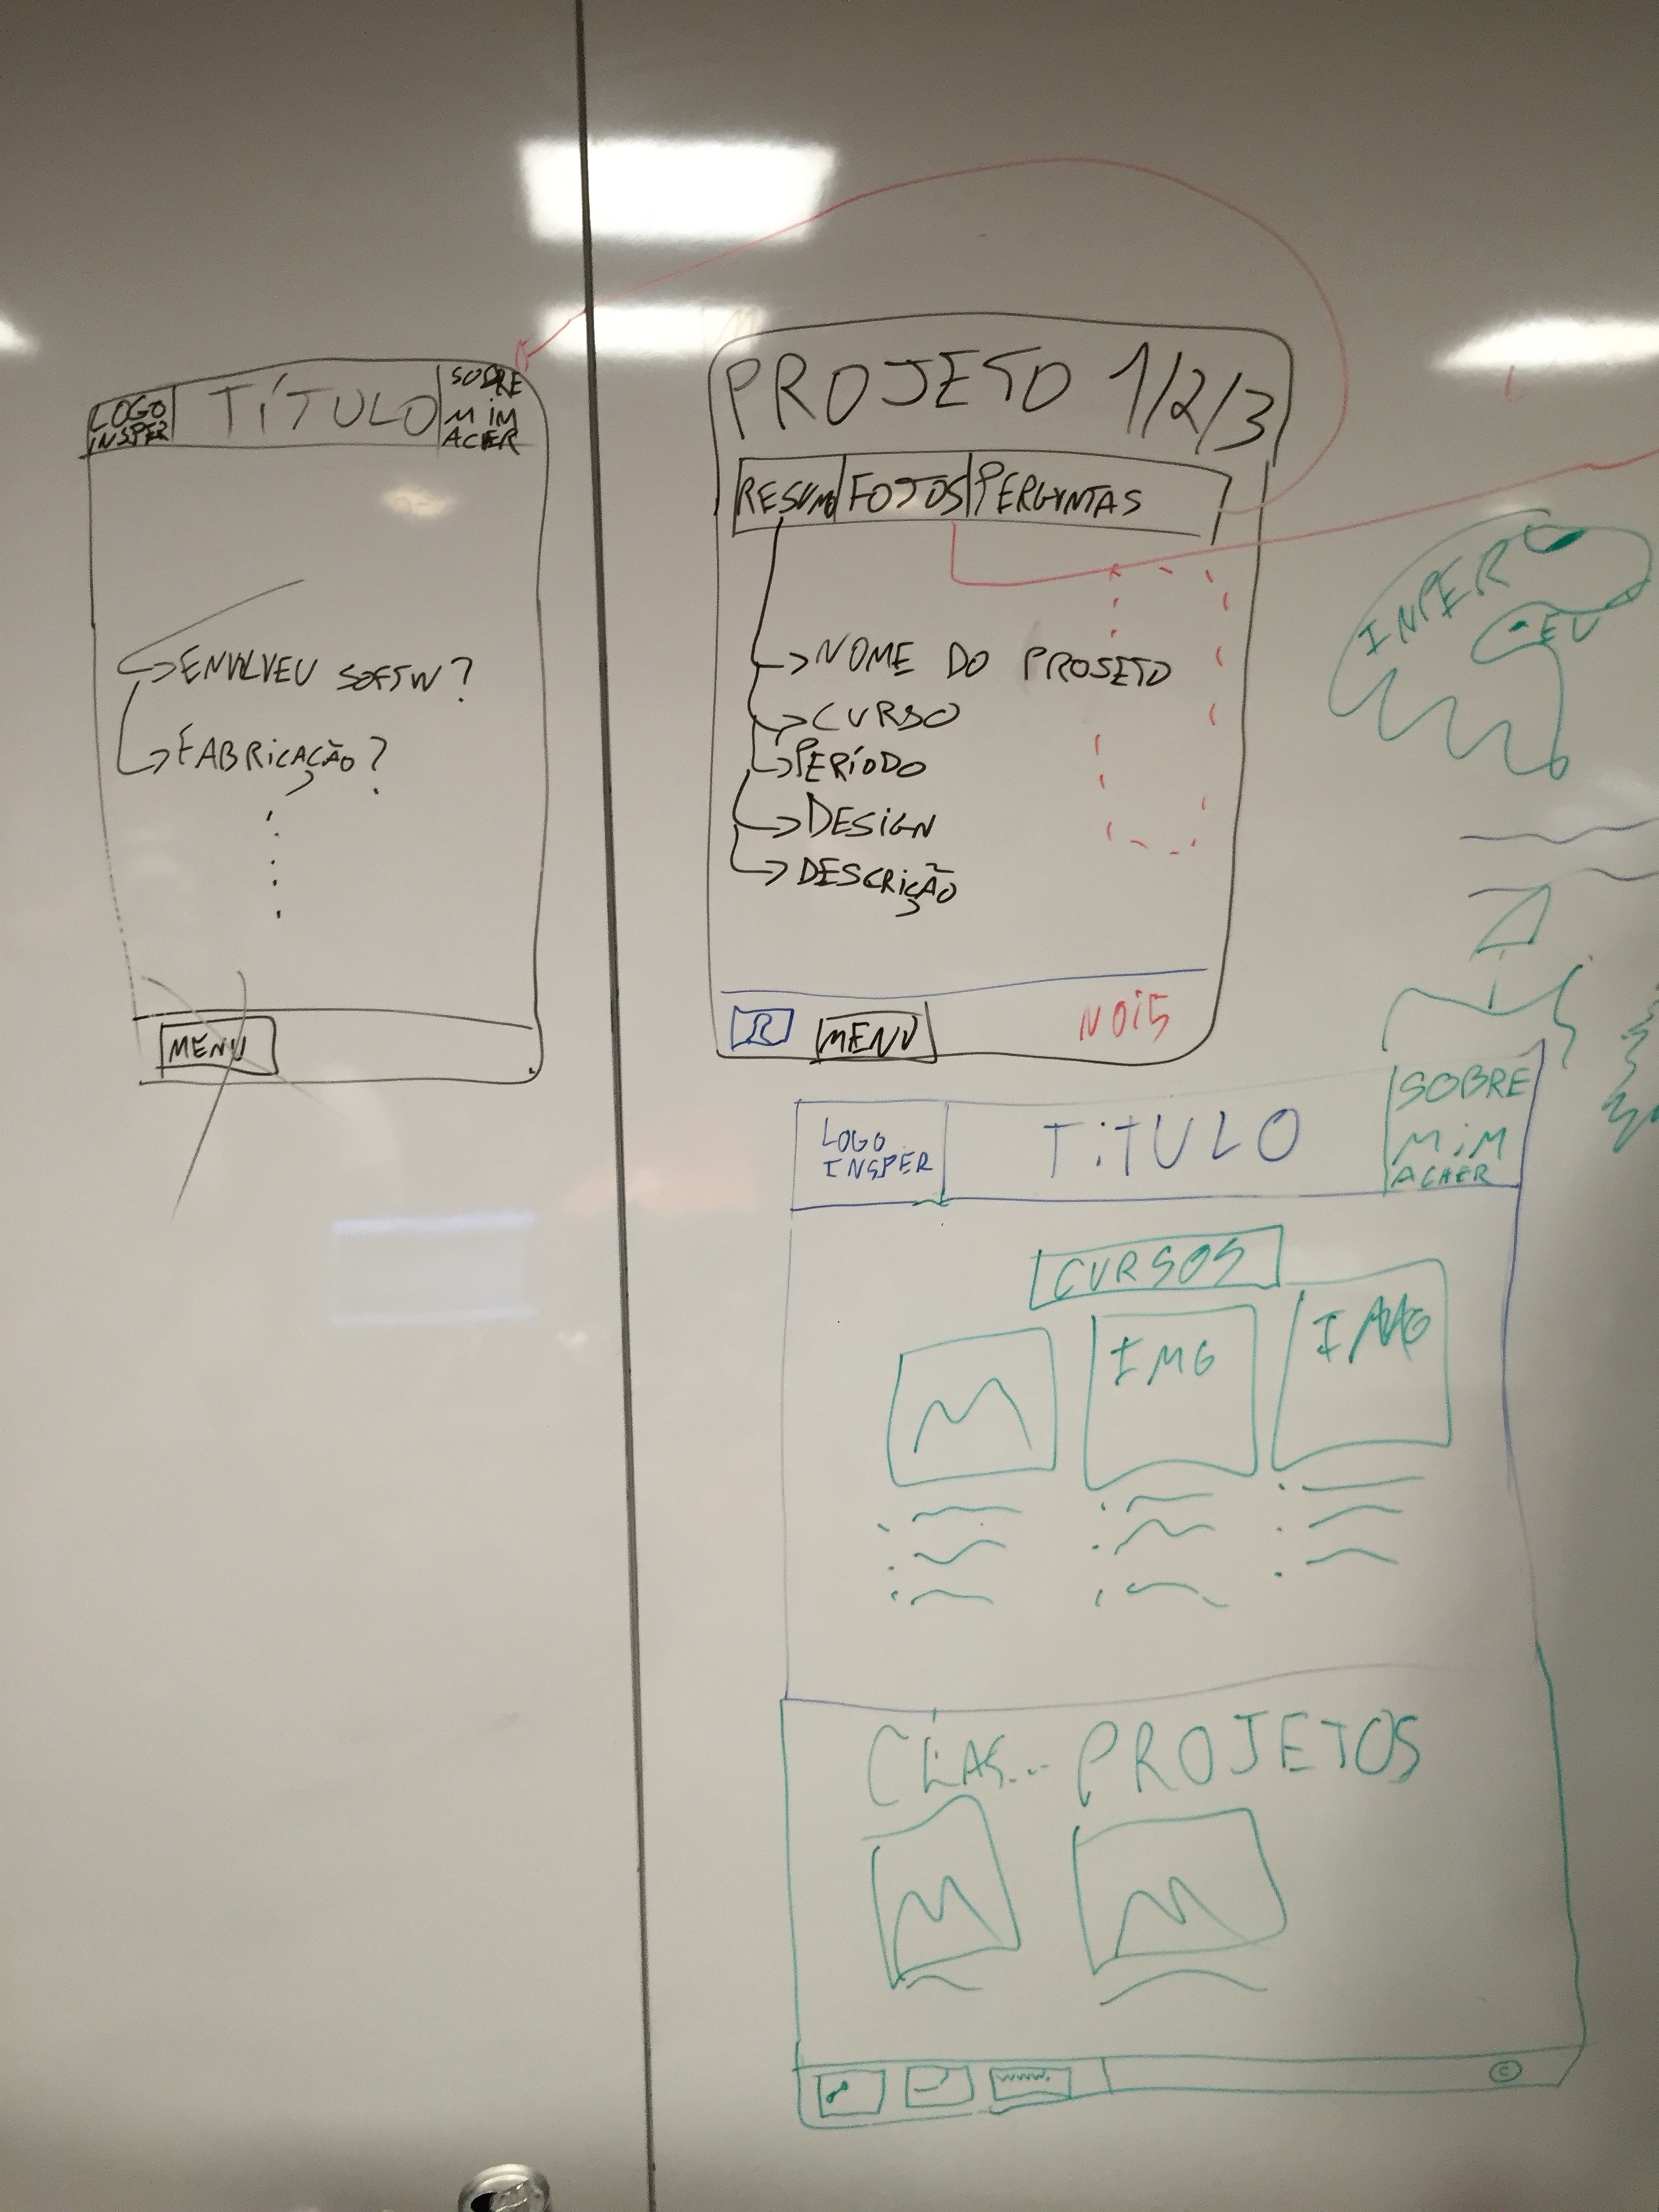 LOGO
INSPER
TÍTULO
SOBRE
MIM
ACHER
ENVLVEU SOFTW?
FABRICAÇÃO?
MENU
PROJETO 1/2/3
RESUMO
FOTOS
PERGUNTAS
NOME DO PROJETO
CURSO
PERÍODO
DESIGN
DESCRIÇÃO
R
MENU
NOiS
INPER
EU
LOGO
INSPER
TiTULO
SOBRE
MiM
ACHER
CURSOS
IMG
IMG
CLAS... PROJETOS
www.
©